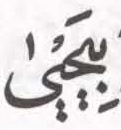 بِيَحْيَىٰ